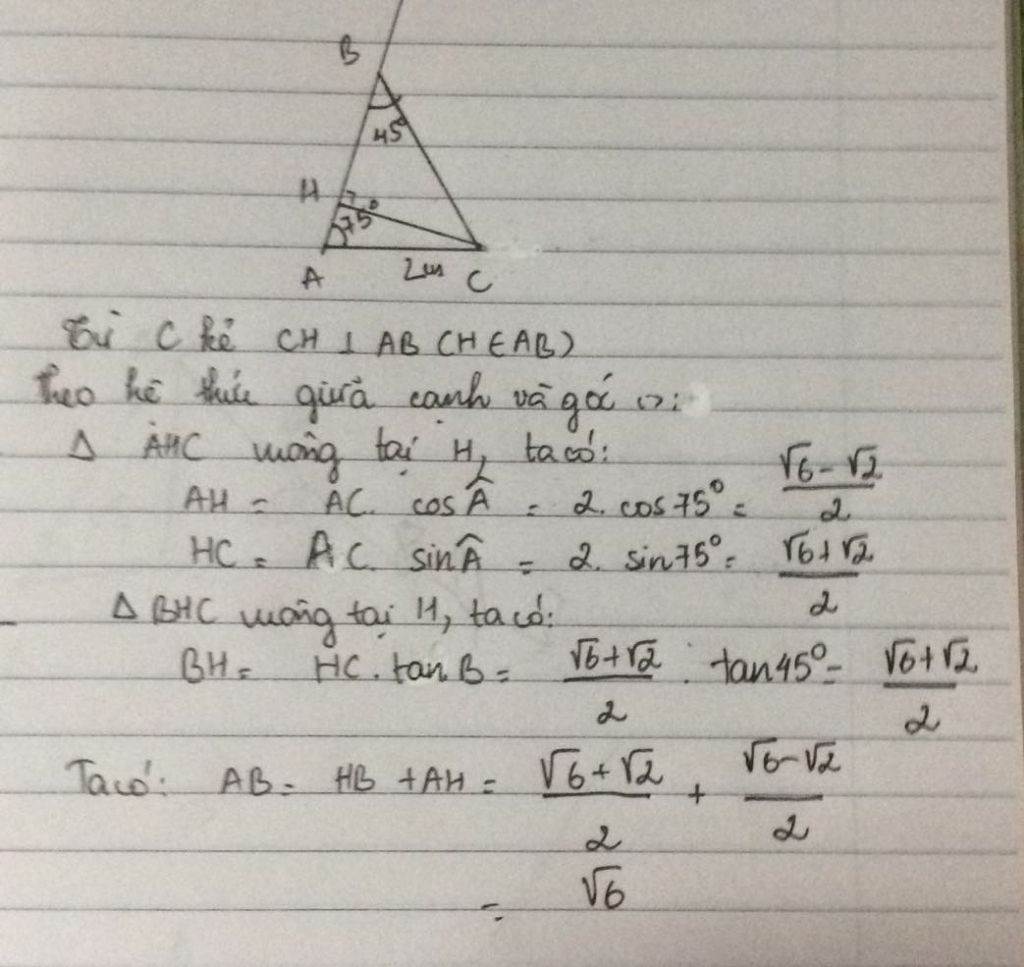 B
45°
H
75°
A
2cm
C
Từ C kẻ CH ⊥ AB (H ∈ AB)
Theo hệ thức giữa cạnh và góc
Δ AHC vuông tại H, ta có:
AH = AC. cos Â = 2. cos75° = (√6 - √2)/2
HC = AC. sin Â = 2. sin75° = (√6 + √2)/2
Δ BHC vuông tại H, ta có:
BH = HC . tan B = (√6 + √2)/2 . tan45° = (√6 + √2)/2
Ta có: AB = HB + AH = (√6 + √2)/2 + (√6 - √2)/2
= √6